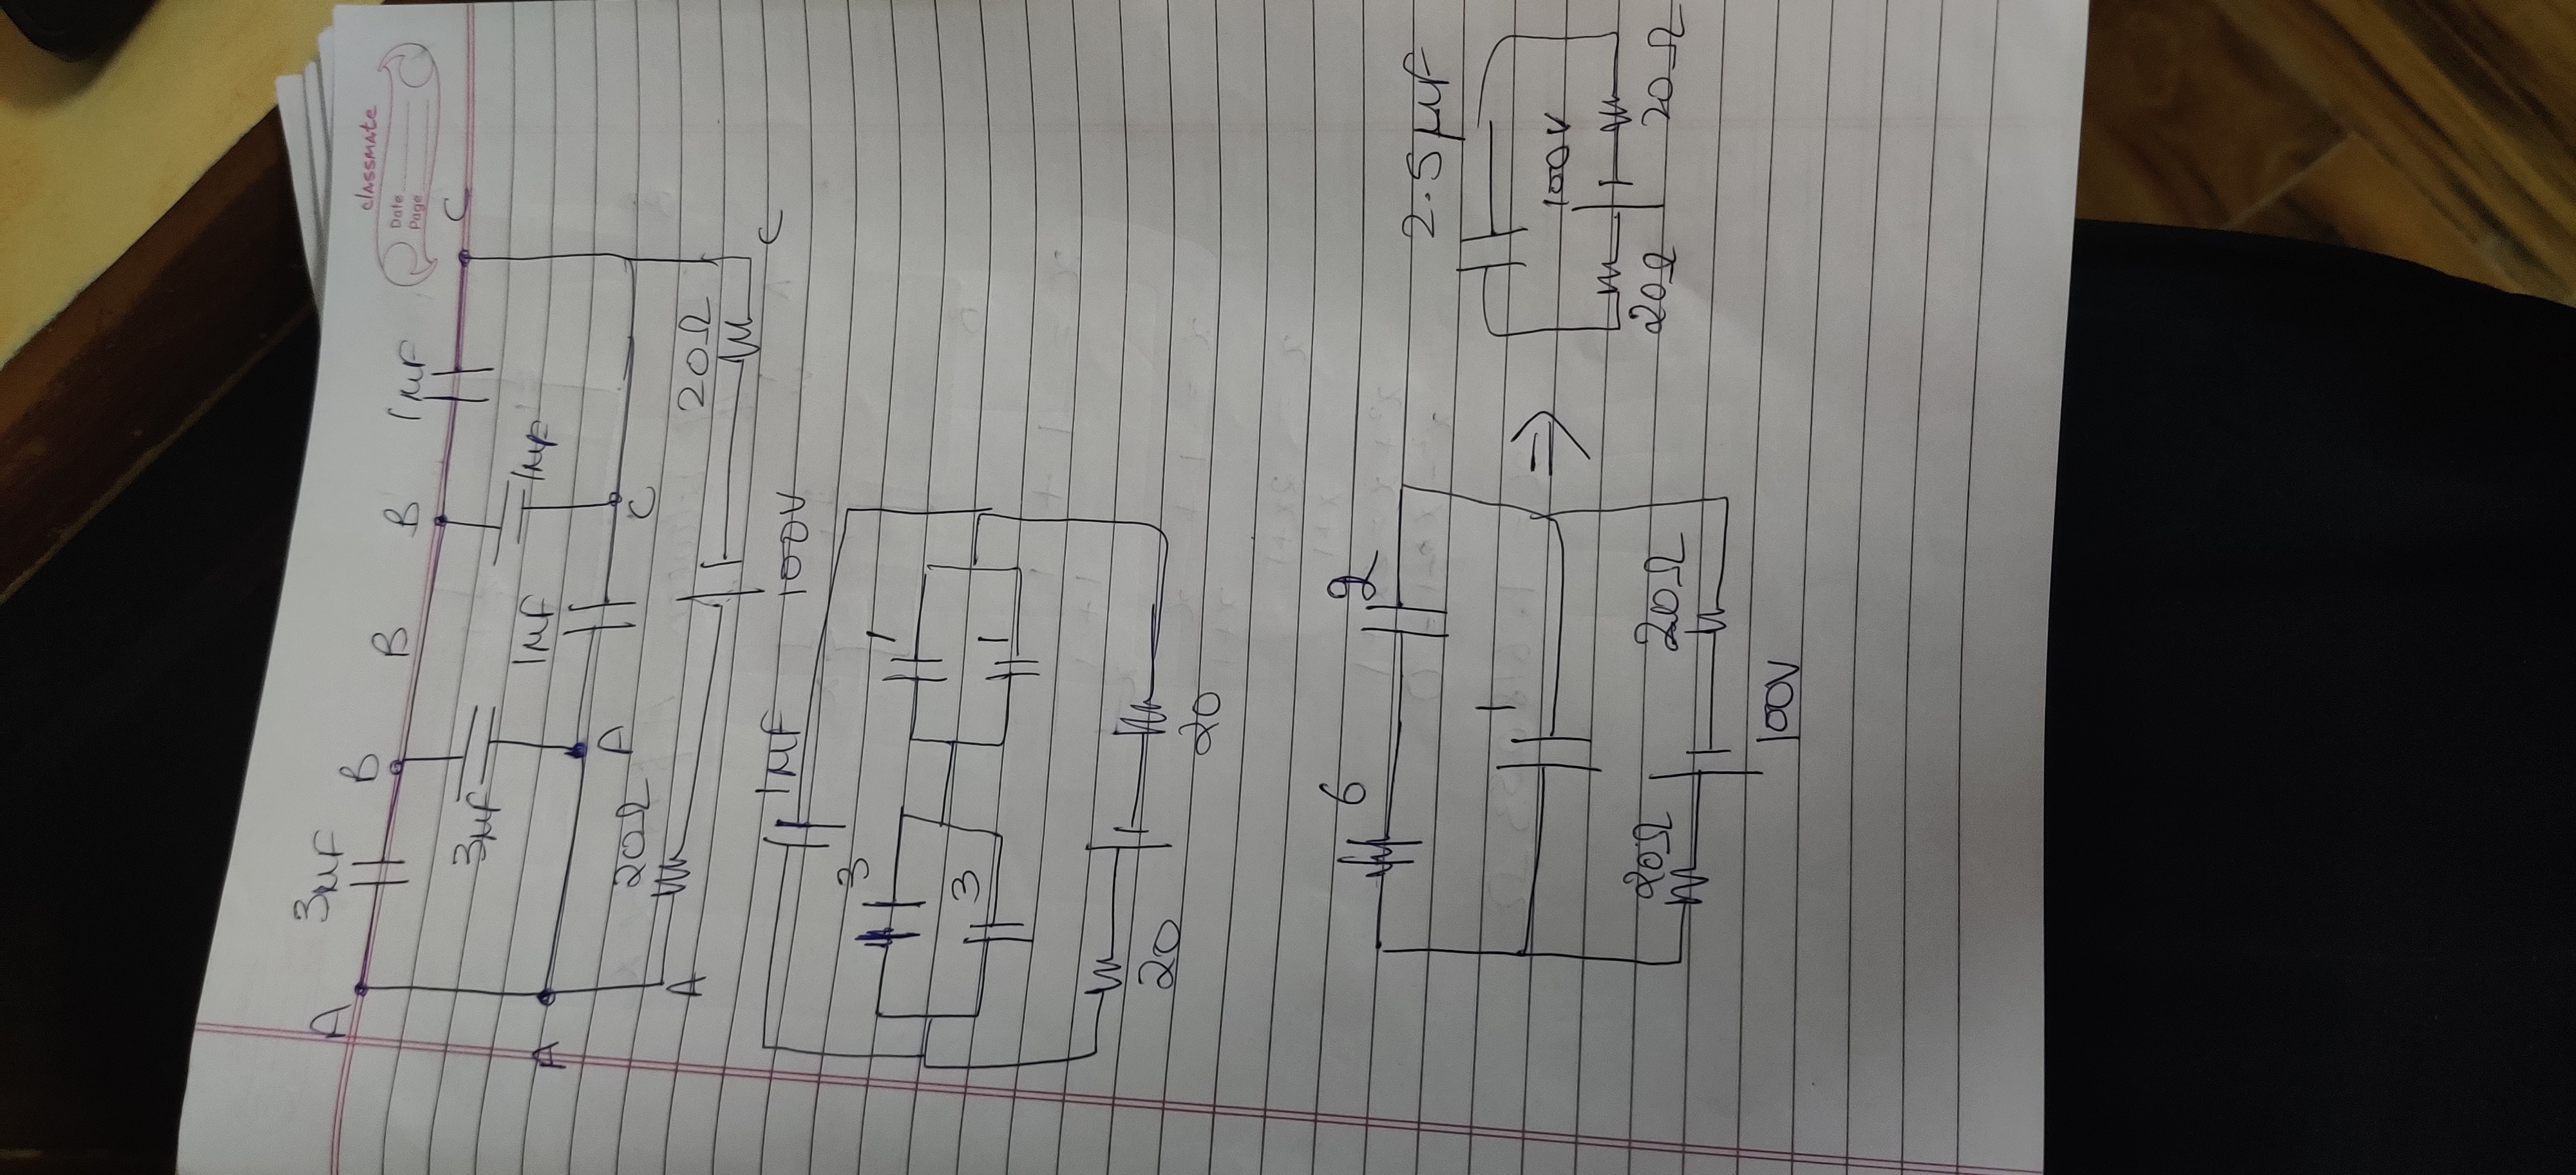 classmate
Date
Page
A 3μF B B B 1μF C
3μF 1μF 1μF
A A C
20Ω 20Ω
A 100V C
1μF
3 1
3 1
20 20
6 2
1
20Ω 20Ω
100V
⇒
2.5μF
100V
20Ω 20Ω